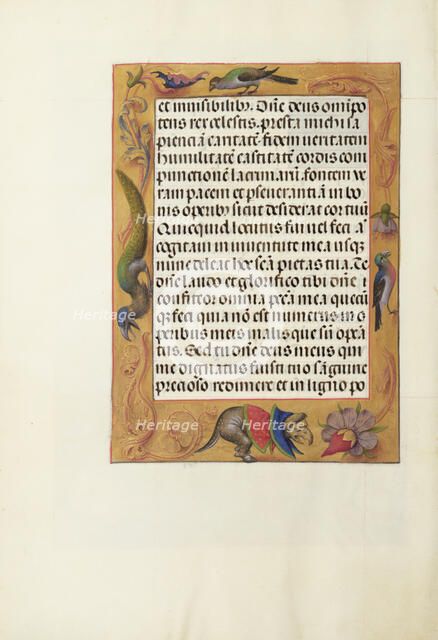 et invisibilib9. Dñe deus omīpo
tens rex celestis. presta michi sa
pienciā caritatē. fidem veritatem
humilitatē castitatē cordis com
punctionē lacrimarū. fontem ve
ram pacem et pseverantiā in bo
nis operib9 sicut desiderat cor tuū
Quicquid locutus fui vel feci aᵗ
cogitavi in iuventute mea usq3
nunc deleat hoc scā pietas tua. Te
dñe laudo et glorifico tibi dñe i
confiteor omnia pctā mea quecū
q3 feci quia nō est numerus in o
peribus meis malis que sū opera
tus. Sed tu dñe deus meus qui
me dignatus fuisti tuo sāguine
precioso redimere et in ligno po
Heritage
Heritage
Heritage
Heritage
Heritage
Heritage